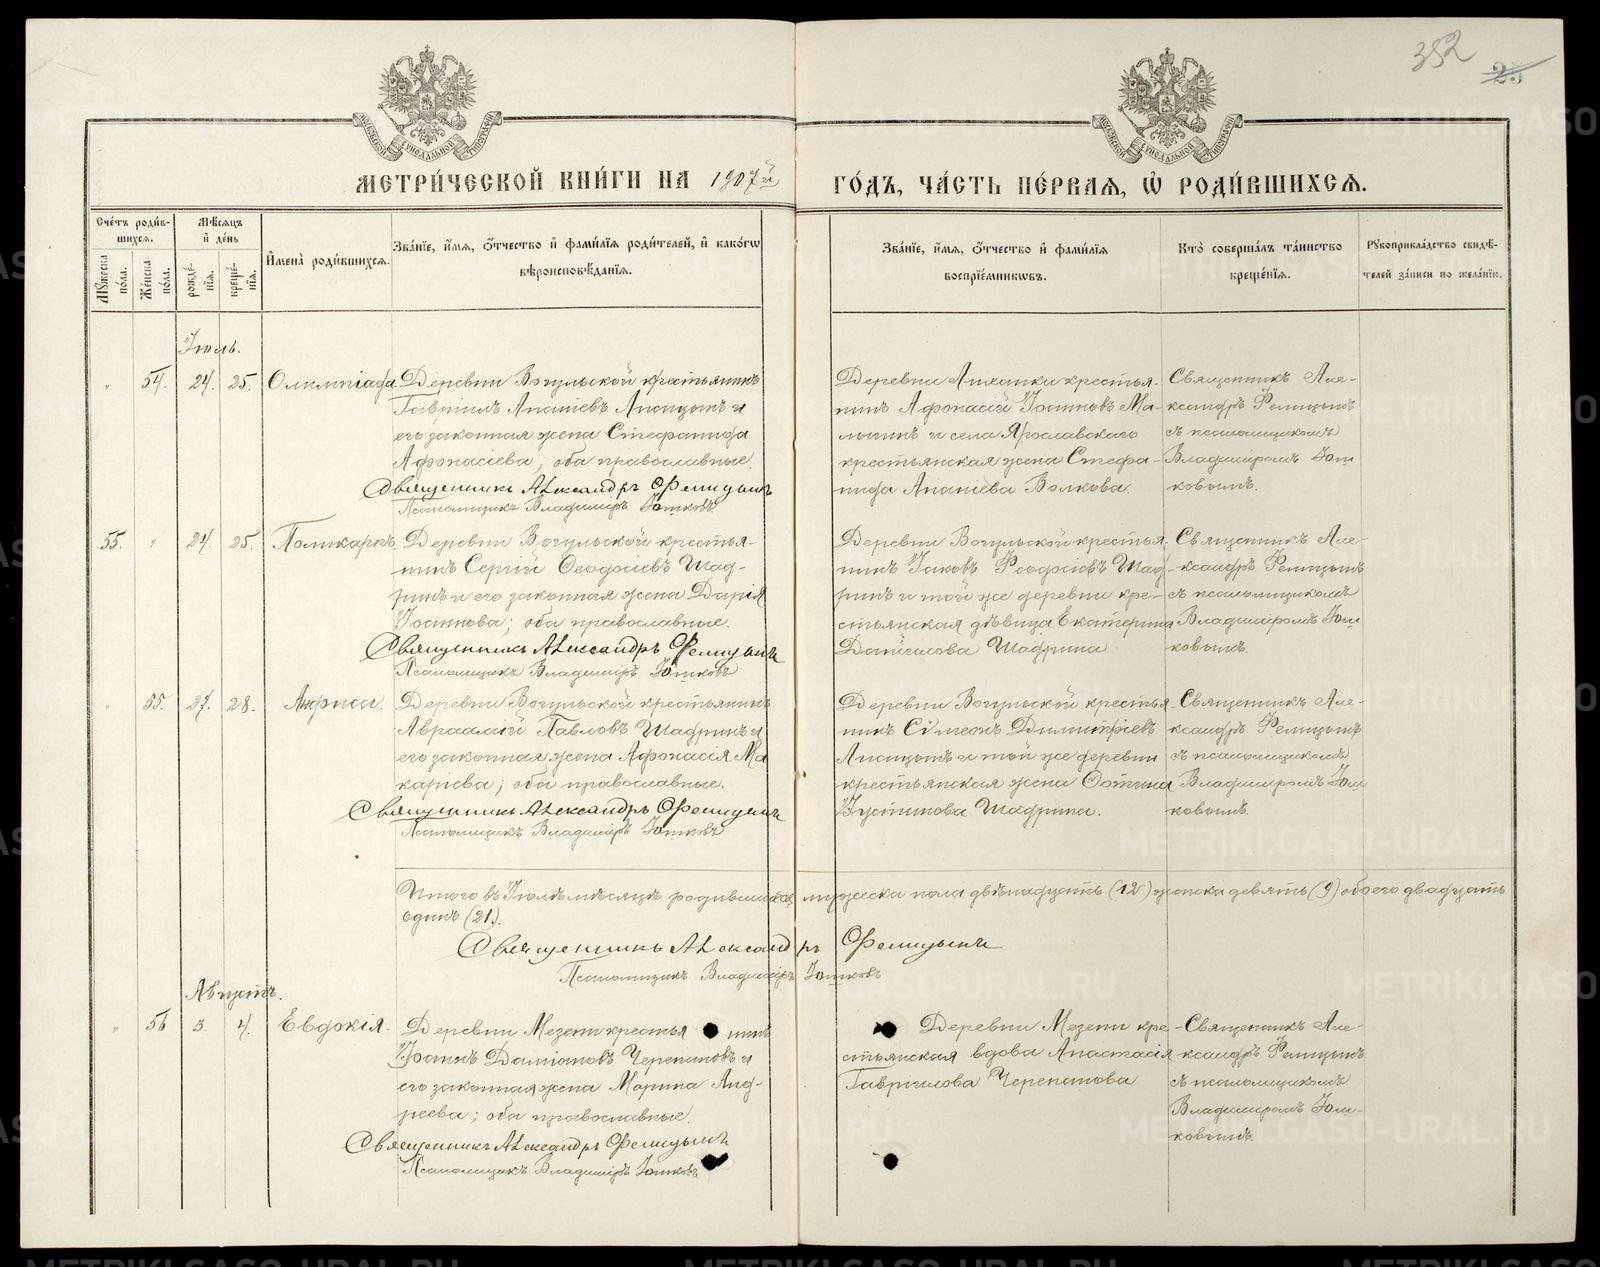 352
25
МОСКОВСКОЙ СѴНОДАЛЬНОЙ ТИПОГРАФІИ
МОСКОВСКОЙ СѴНОДАЛЬНОЙ ТИПОГРАФІИ
МЕТРИ́ЧЕСКОЙ КНИ́ГИ НА 1907й
ГО́ДЪ, ЧА́СТЬ ПЕ́РВАЯ, Ѡ РОДИ́ВШИХСЯ.
Сче́тъ роди́в-
шихся.
Мꙋжеска по́ла.
Же́нска по́ла.
Мѣ́сяцъ
и де́нь
рожде́-
нїя.
креще́-
нїя.
И́мена роди́вшихся.
Зва́нїе, и́мя, о́тчество и фами́лїя роди́телей, и како́гѡ
вѣроисповѣ́данїя.
Зва́нїе, и́мя, о́тчество и фами́лїя
воспрїе́мникѡвъ.
Кто̀ соверша́лъ та́инство
креще́нїя.
Рꙋкоприкла́дство свидѣ́-
телей за́писи по жела́нїю.
Іюль.
" 54. 24. 25. Олимпіада.
Деревни Вогульской крестьянинъ
Гавріилъ Ананіевъ Лисицынъ и
его законная жена Стефанида
Афонасіева; оба православные.
Священникъ Александръ Фелицынъ
Псаломщикъ Владиміръ Юшковъ
Деревни Лиханки крестья-
нинъ Афонасій Іоанновъ Ма-
лыгинъ и села Ярославскаго
крестьянская жена Стефа-
нида Ананіева Волкова.
Священникъ Але-
ксандръ Фелицынъ
съ псаломщикомъ
Владиміромъ Юш-
ковымъ.
55. " 24. 25. Поликарпъ.
Деревни Вогульской крестья-
нинъ Сергій Ѳеодосіевъ Шад-
ринъ и его законная жена Дарія
Іоаннова; оба православные.
Священникъ Александръ Фелицынъ
Псаломщикъ Владиміръ Юшковъ
Деревни Вогульской крестья-
нинъ Іаковъ Феодосіевъ Шад-
ринъ и той же деревни кре-
стьянская дѣвица Екатерина
Даніилова Шадрина
Священникъ Але-
ксандръ Фелицынъ
съ псаломщикомъ
Владиміромъ Юш-
ковымъ.
" 55. 27. 28. Анфиса.
Деревни Вогульской крестьянинъ
Авраамій Павловъ Шадринъ и
его законная жена Афонасія Ма-
каріева; оба православные.
Священникъ Александръ Фелицынъ
Псаломщикъ Владиміръ Юшковъ
Деревни Вогульской крестья-
нинъ Сімеонъ Димитріевъ
Лисицынъ и той же деревни
крестьянская жена Фотина
Іустинова Шадрина.
Священникъ Але-
ксандръ Фелицынъ
съ псаломщикомъ
Владиміромъ Юш-
ковымъ.
Итого въ Іюлѣ мѣсяцѣ родившихся мужеска пола двѣнадцать (12) женска девять (9) обоего двадцать
одинъ (21).
Священникъ Александръ Фелицынъ
Псаломщикъ Владиміръ Юшковъ
Августъ.
" 56 3. 4. Евдокія.
Деревни Мезени крестьянинъ
Іоаннъ Даміановъ Черепановъ и
его законная жена Марина Анд-
реева; оба православные.
Священникъ Александръ Фелицынъ
Псаломщикъ Владиміръ Юшковъ
Деревни Мезени кре-
стьянская вдова Анастасія
Гавріилова Черепанова
Священникъ Але-
ксандръ Фелицынъ
съ псаломщикомъ
Владиміромъ Юш-
ковымъ.